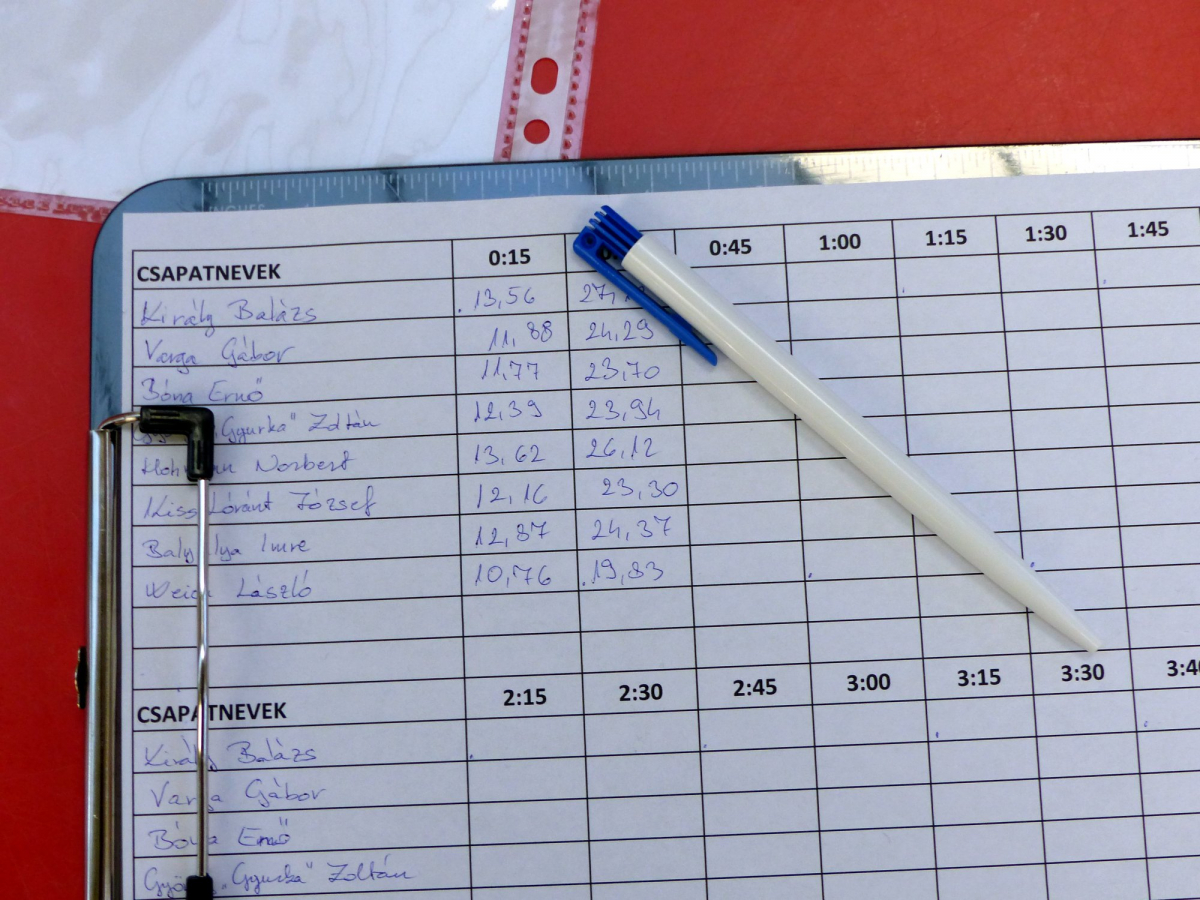 INCHES
CSAPATNEVEK 0:15 0:45 1:00 1:15 1:30 1:45
Király Balázs 13,56 27,
Varga Gábor 11,88 24,29
Bóna Ernő 11,77 23,70
„Gyurka" Zoltán 12,39 23,94
Norbert 13,62 26,12
Kiss Lóránt József 12,16 23,30
Imre 12,87 24,37
László 10,76 19,83
CSAPATNEVEK 2:15 2:30 2:45 3:00 3:15 3:30 3:4
Király Balázs
Varga Gábor
Bóna Ernő
„Gyurka" Zoltán